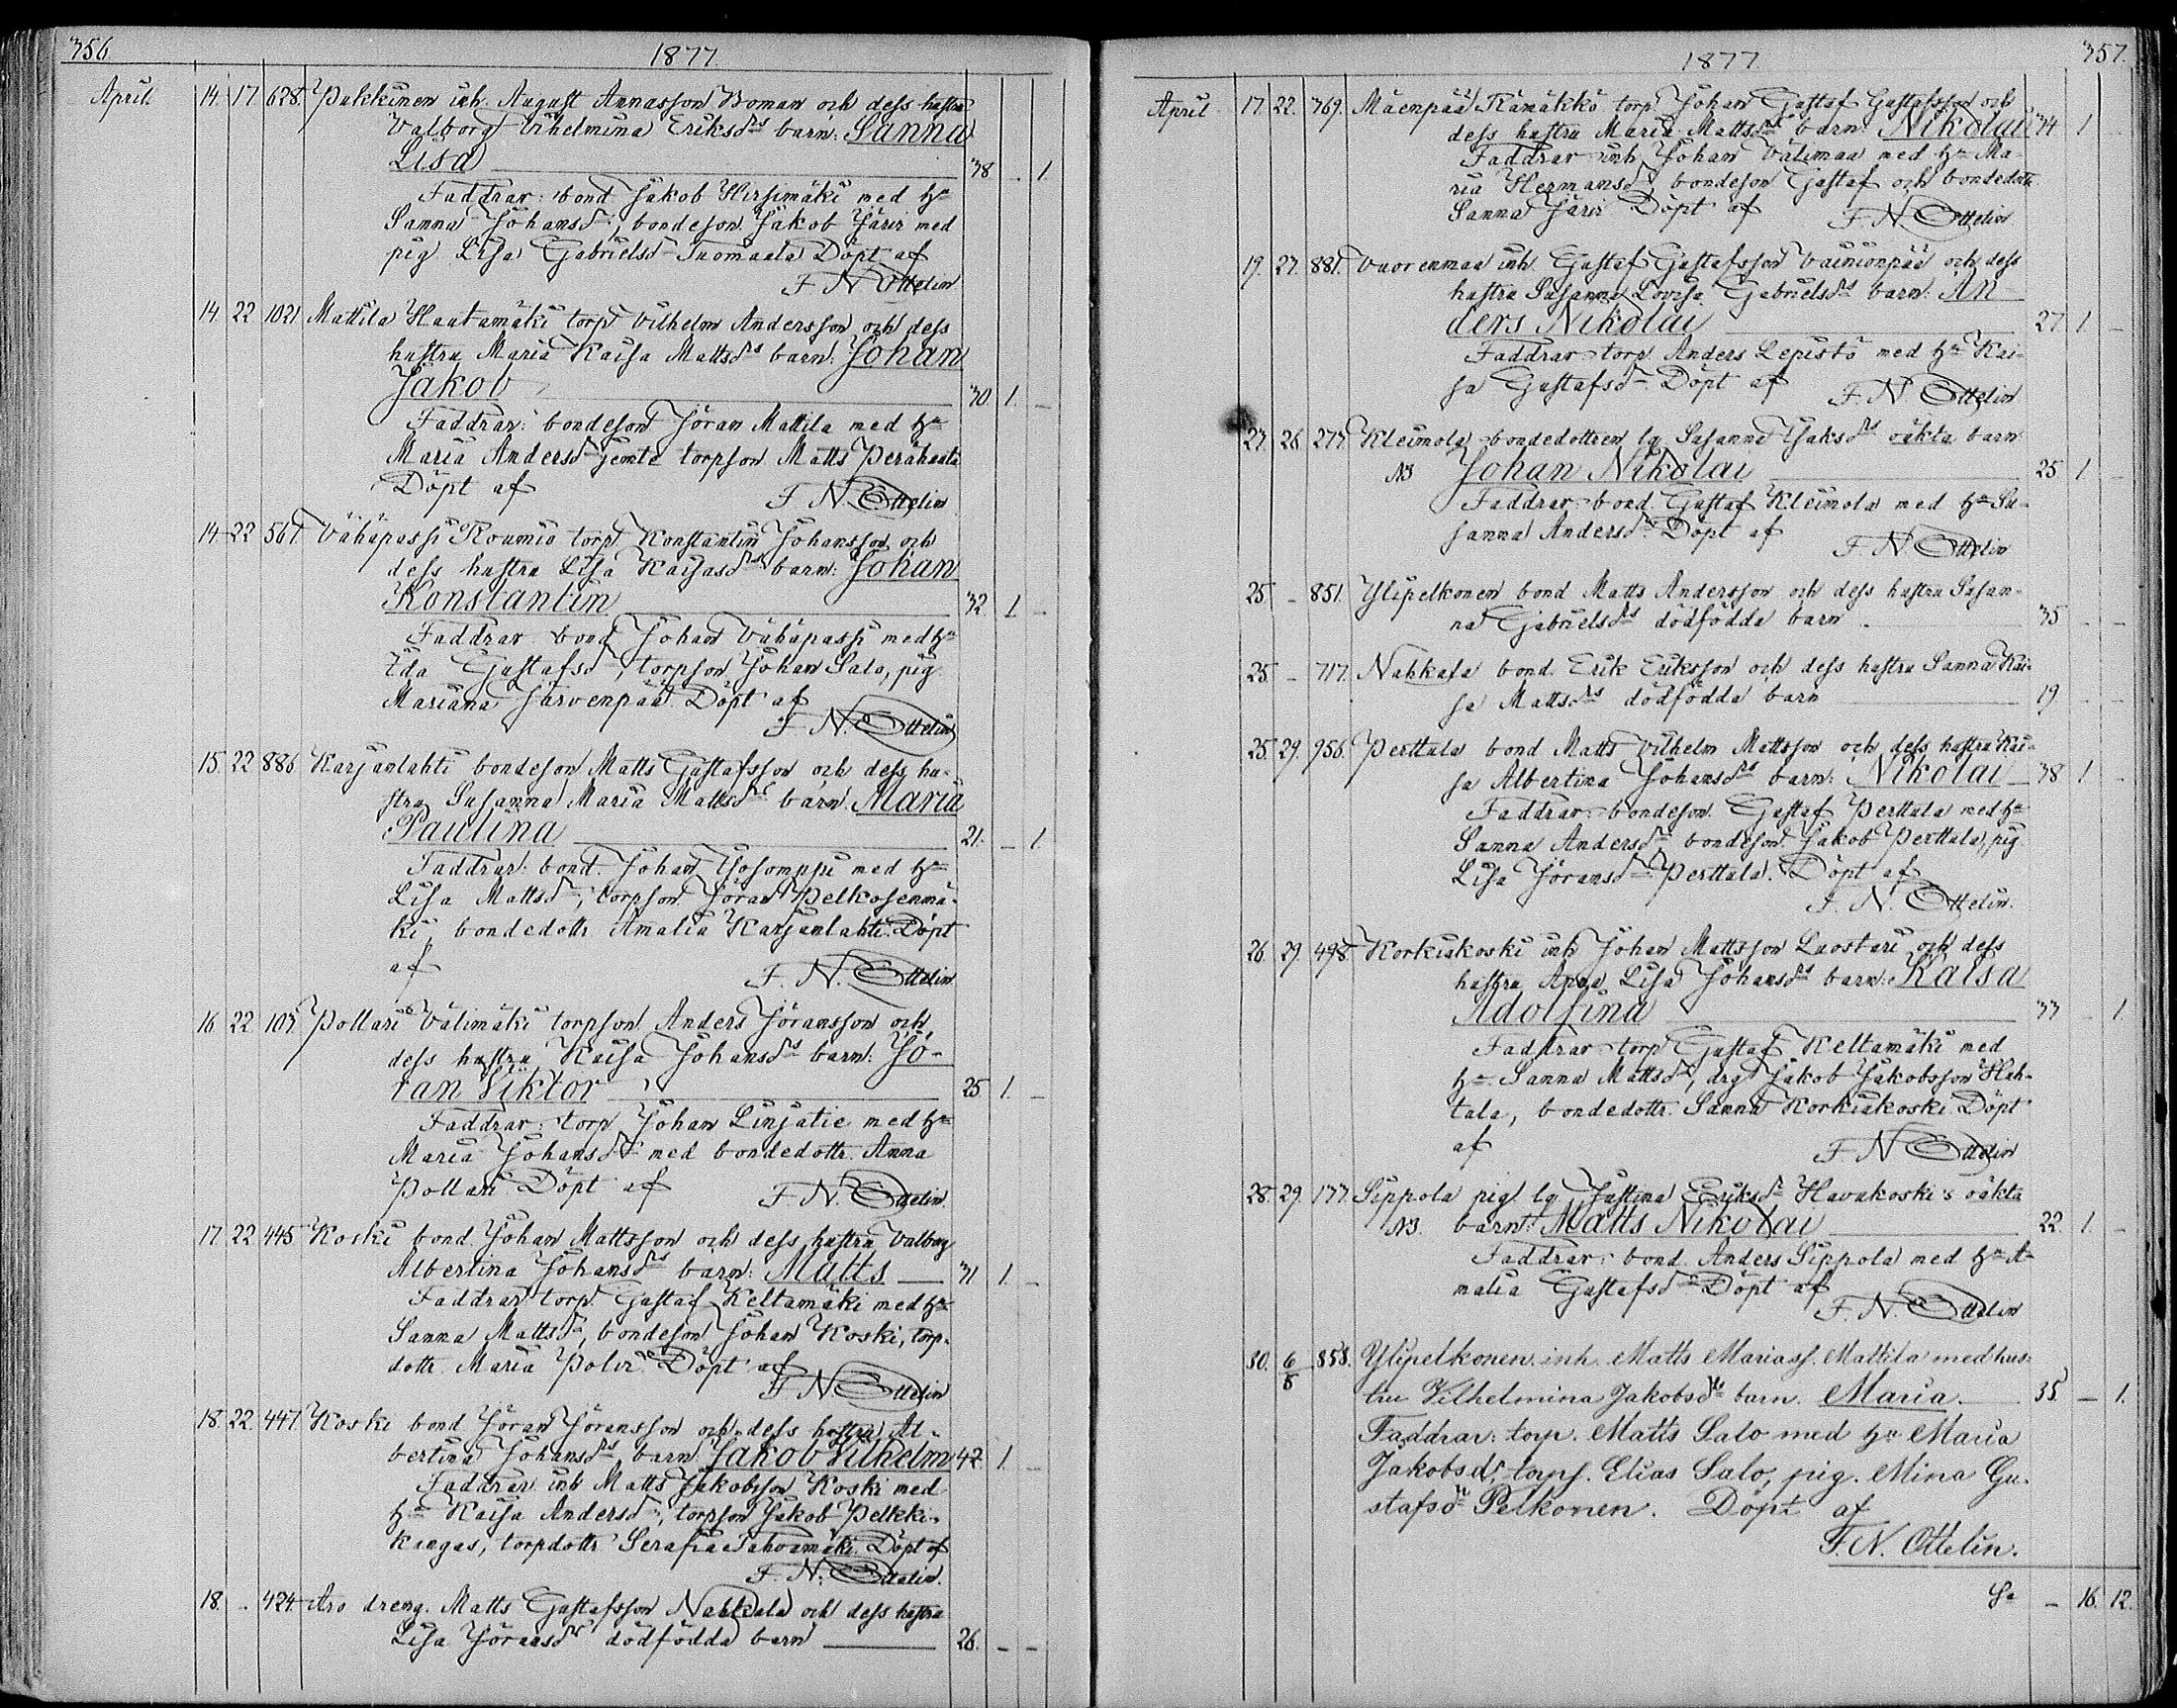 356
1877.
April. 14. 17. 628. Pukkinen inh. August Annasson Boman och dess hustru
Valborg Vilhelmina Eriksdrs barn: Sanna
Lisa 38 - 1
Faddrar: bond. Jakob Hirsimäki med hu
Sanna Johansdr, bondeson Jakob Järir med
pig. Lisa Gabrielsdr Tuomaala Döpt af
F N Ottelin
14. 22 1021. Mattila Haatamäki torp. Vilhelm Andersson och dess
hustru Maria Kaisa Mattsdrs barn: Johan
Jakob 30. 1. -
Faddrar: bondeson Jöran Mattila med hu
Maria Andersdr jemte torpson Matts Perähaata
Döpt af F. N. Ottelin
14 22 567. Vähäpassi Roumio torp. Konstantin Johansson och
dess hustru Lisa Kaisasdrs barn: Johan
Konstantin 32. 1 -
Faddrar bond. Johan Vähäpassi med hu
Ida Gustafsdr, torpson Johan Salo, pig.
Mariana Järvenpää. Döpt af
F. N. Ottelin
15. 22 886 Karjanlahti bondeson Matts Gustafsson och dess hu-
stru Susanna Maria Mattsdrs barn: Maria
Paulina 21. - 1
Faddrar: bond. Johan Isosomppi med hu
Lisa Mattsdr, torpson Jöran Pelkosenmä-
ki, bondedottr Amalia Karjanlahti. Döpt
af F. N. Ottelin
16. 22 107. Pollari Välimäki torpson Anders Jöransson och
dess hustru Kaisa Johansdrs barn: Jö-
ran Viktor 25. 1. -
Faddrar: torp. Johan Linjatie med hu
Maria Johansdr med bondedottr. Anna
Pollari. Döpt af F. N. Ottelin.
17. 22 445 Koski bond. Johan Mattsson och dess hustru Valborg
Albertina Johansdrs barn: Matts 31 1. -
Faddrar torp. Gustaf Keltamäki med hu
Sanna Mattsdr, bondeson Johan Koski, torp-
dottr. Maria Polvi. Döpt af
F. N Ottelin
18. 22. 447. Koski bond Jöran Jöransson och dess hustru Al-
bertina Johansdrs barn Jakob Vilhelm 42. 1. -
Faddrar inh Matts Jakobsson Koski med
hu Kaisa Andersdr, torpson Jakob Pelkki-
kangas, torpdottr Serafia Tahoamäki. Döpt af
F. N. Ottelin.
18. - 424. Aro dreng. Matts Gustafsson Nahkala och dess hustru
Lisa Jöransdrs dödfödda barn 26. - -
1877. 357.
April 17. 22. 769. Mäenpää Rämäkkö torp Johan Gustaf Gustafsson och
dess hustru Maria Mattsdrs barn: Nikolai 34 1 -
Faddrar inh. Johan Välimaa med hu Ma-
ria Hermansdr, bondeson Gustaf och bondedottr
Sanna Järir Döpt af F. N Ottelin
19. 27. 881. Vuorenmaa inh. Gustaf Gustafsson Vainionpää och dess
hustru Susanna Lovisa Gabrielsdrs barn: An-
ders Nikolai 27. 1 -
Faddrar torp. Anders Lepistö med hu Kai-
sa Gustafsdr Döpt af F. N. Ottelin
27. 26. 277. Kleimola bondedottren lg. Susanna Isaksdrs oäkta barn
NB Johan Nikolai 25 1 -
Faddrar bond. Gustaf Kleimola med hu Su-
sanna Andersdr. Döpt af F. N Ottelin
25 - 851. Ylipelkonen bond Matts Andersson och dess hustru Susan-
na Gabrielsdrs dödfödda barn 35 - -
25. - 717. Nahkala bond. Erik Eriksson och dess hustru Sanna Kai-
sa Mattsdrs dödfödda barn 19 - -
25. 29. 956. Perttula bond Matts Vilhelm Mattsson och dess hustru Kai-
sa Albertina Johansdrs barn: Nikolai 38 1 -
Faddrar: bondeson. Gustaf Perttula med hu
Sanna Andersdr, bondeson Jakob Perttula, pig
Lisa Jöransdr Perttula. Döpt af
F. N. Ottelin.
26. 29. 498. Korkiakoski inh. Johan Mattsson Luostari och dess
hustru Anna Lisa Johansdrs barn: Kaisa
Adolfina 33 - 1.
Faddrar torp. Gustaf Keltamäki med
hu Sanna Mattsdr, drg Jakob Jakobsson Hah-
tala, bondedottr. Sanna Korkiakoski. Döpt
af F. N Ottelin
28. 29. 177. Sippola pig. lg. Justina Eriksdr Havukoski's oäkta
NB. barn: Matts Nikolai 22. 1. -
Faddrar: bond. Anders Sippola med hu A-
malia Gustafsdr Döpt af
F. N. Ottelin
30. 6/5 858. Ylipelkonen. inh. Matts Mariass. Mattila med hus-
tru Vilhelmina Jakobsdrs barn. Maria. 35. - 1.
Faddrar: torp. Matts Salo med hu Maria
Jakobsdr, torps. Elias Salo, pig. Mina Gu-
stafsdr Pelkonen. Döpt af
F. N. Ottelin.
Sa - 16. 12.